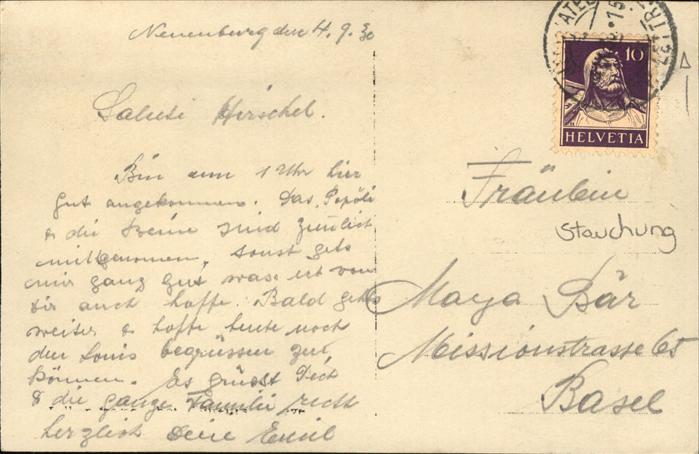 Neuenburg den 4.9.30
Saluti Hirschel.
Bin um 1 Uhr hier
gut angekommen. Das Popöli
& die Beine sind ziemlich
mitgenommen, sonst gehts
mir ganz gut was ich von
Dir auch hoffe. Bald gehts
weiter & hoffe heute noch
den Louis begrüssen zu
können. Es grüsst Dich
& die ganze Familie recht
herzlich Deine Emil
10
HELVETIA
Fräulein
Stauchung
Maya Bär
Missionstrasse 65
Basel